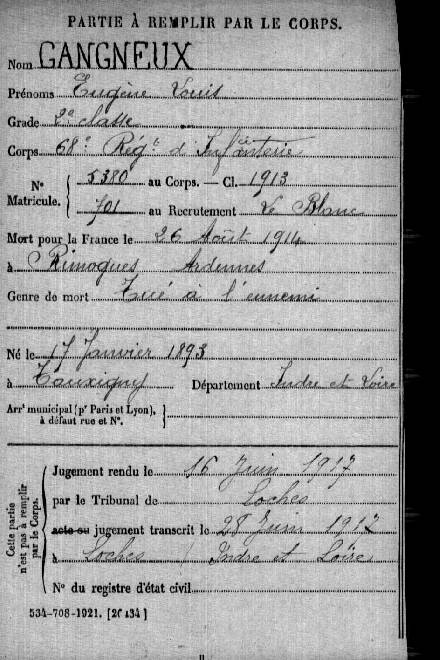 PARTIE À REMPLIR PAR LE CORPS.
Nom GANGNEUX
Prénoms Eugène Louis
Grade 2e classe
Corps 68e Régt d'Infanterie
No Matricule. 5380 au Corps. — Cl. 1913
701 au Recrutement Le Blanc
Mort pour la France le 26 Août 1914
à Rimogues Ardennes
Genre de mort Tué à l'ennemi
Né le 17 Janvier 1893
à Tauxigny Département Indre et Loire
Arrt municipal (pr Paris et Lyon),
à défaut rue et No.
Cette partie n'est pas à remplir par le Corps.
Jugement rendu le 16 Juin 1917
par le Tribunal de Loches
acte ou jugement transcrit le 28 Juin 1917
à Loches Indre et Loire
No du registre d'état civil
534-708-1921. [26434]